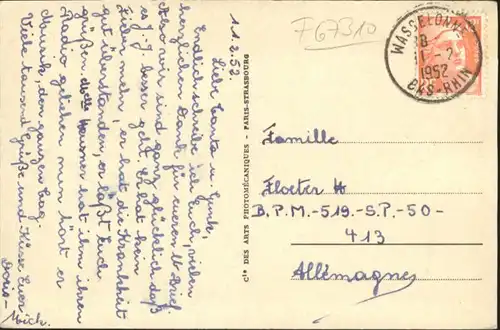 F67310
WASSELONNE
1 - 2
1952
BAS-RHIN
11.2.52.
Liebe Tante u.
Endlich schreibe ich Euch, vielen
herzlichen Dank für eueren lb Brief
also wir sind ganz glücklich daß
es J. J. besser geht. Er hat kein
Fieber mehr, er hat die Krankheit
gut überstanden, er läßt Euch
grüßen. hat ihm ihren
Radio geliehen nun hört er
Musik, den ganzen Tag.
Viele tausend Grüße und Küsse Euer
Doris - Mich.
Cie DES ARTS PHOTOMÉCANIQUES - PARIS-STRASBOURG
Familie
Floeter H
B.P.M-519.-S.P.-50-
413
Allemagne